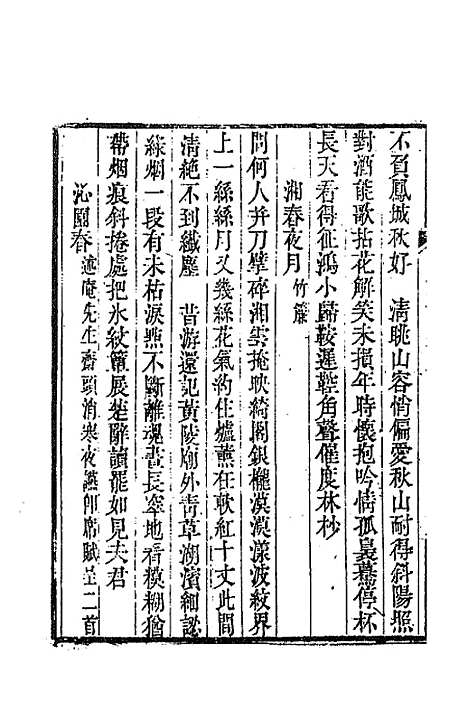 不負鳳城秋好　清眺山容悄偏愛秋山耐得斜陽照
對酒能歌拈花解笑未損年時懷抱吟情孤裊驀停杯
長天看得征鴻小歸鞍遲鞚角聲催度林杪
湘春夜月竹簾
問何人幷刀劈碎湘雲掩映綺閣銀櫳漠漠漾波紋界
上一絲絲月又幾絲花氣約住爐薰在軟紅十丈此間
清絕不到纖塵　昔游還記黃陵廟外靑草湖濱細認
綠烟一段有未枯淚㸃不斷離魂晝長窣地看模糊猶
帶烟痕斜捲處把氷紋簟展楚辭讀罷如見夫君
沁園春述庵先生齋頭消寒夜讌卽席賦呈二首